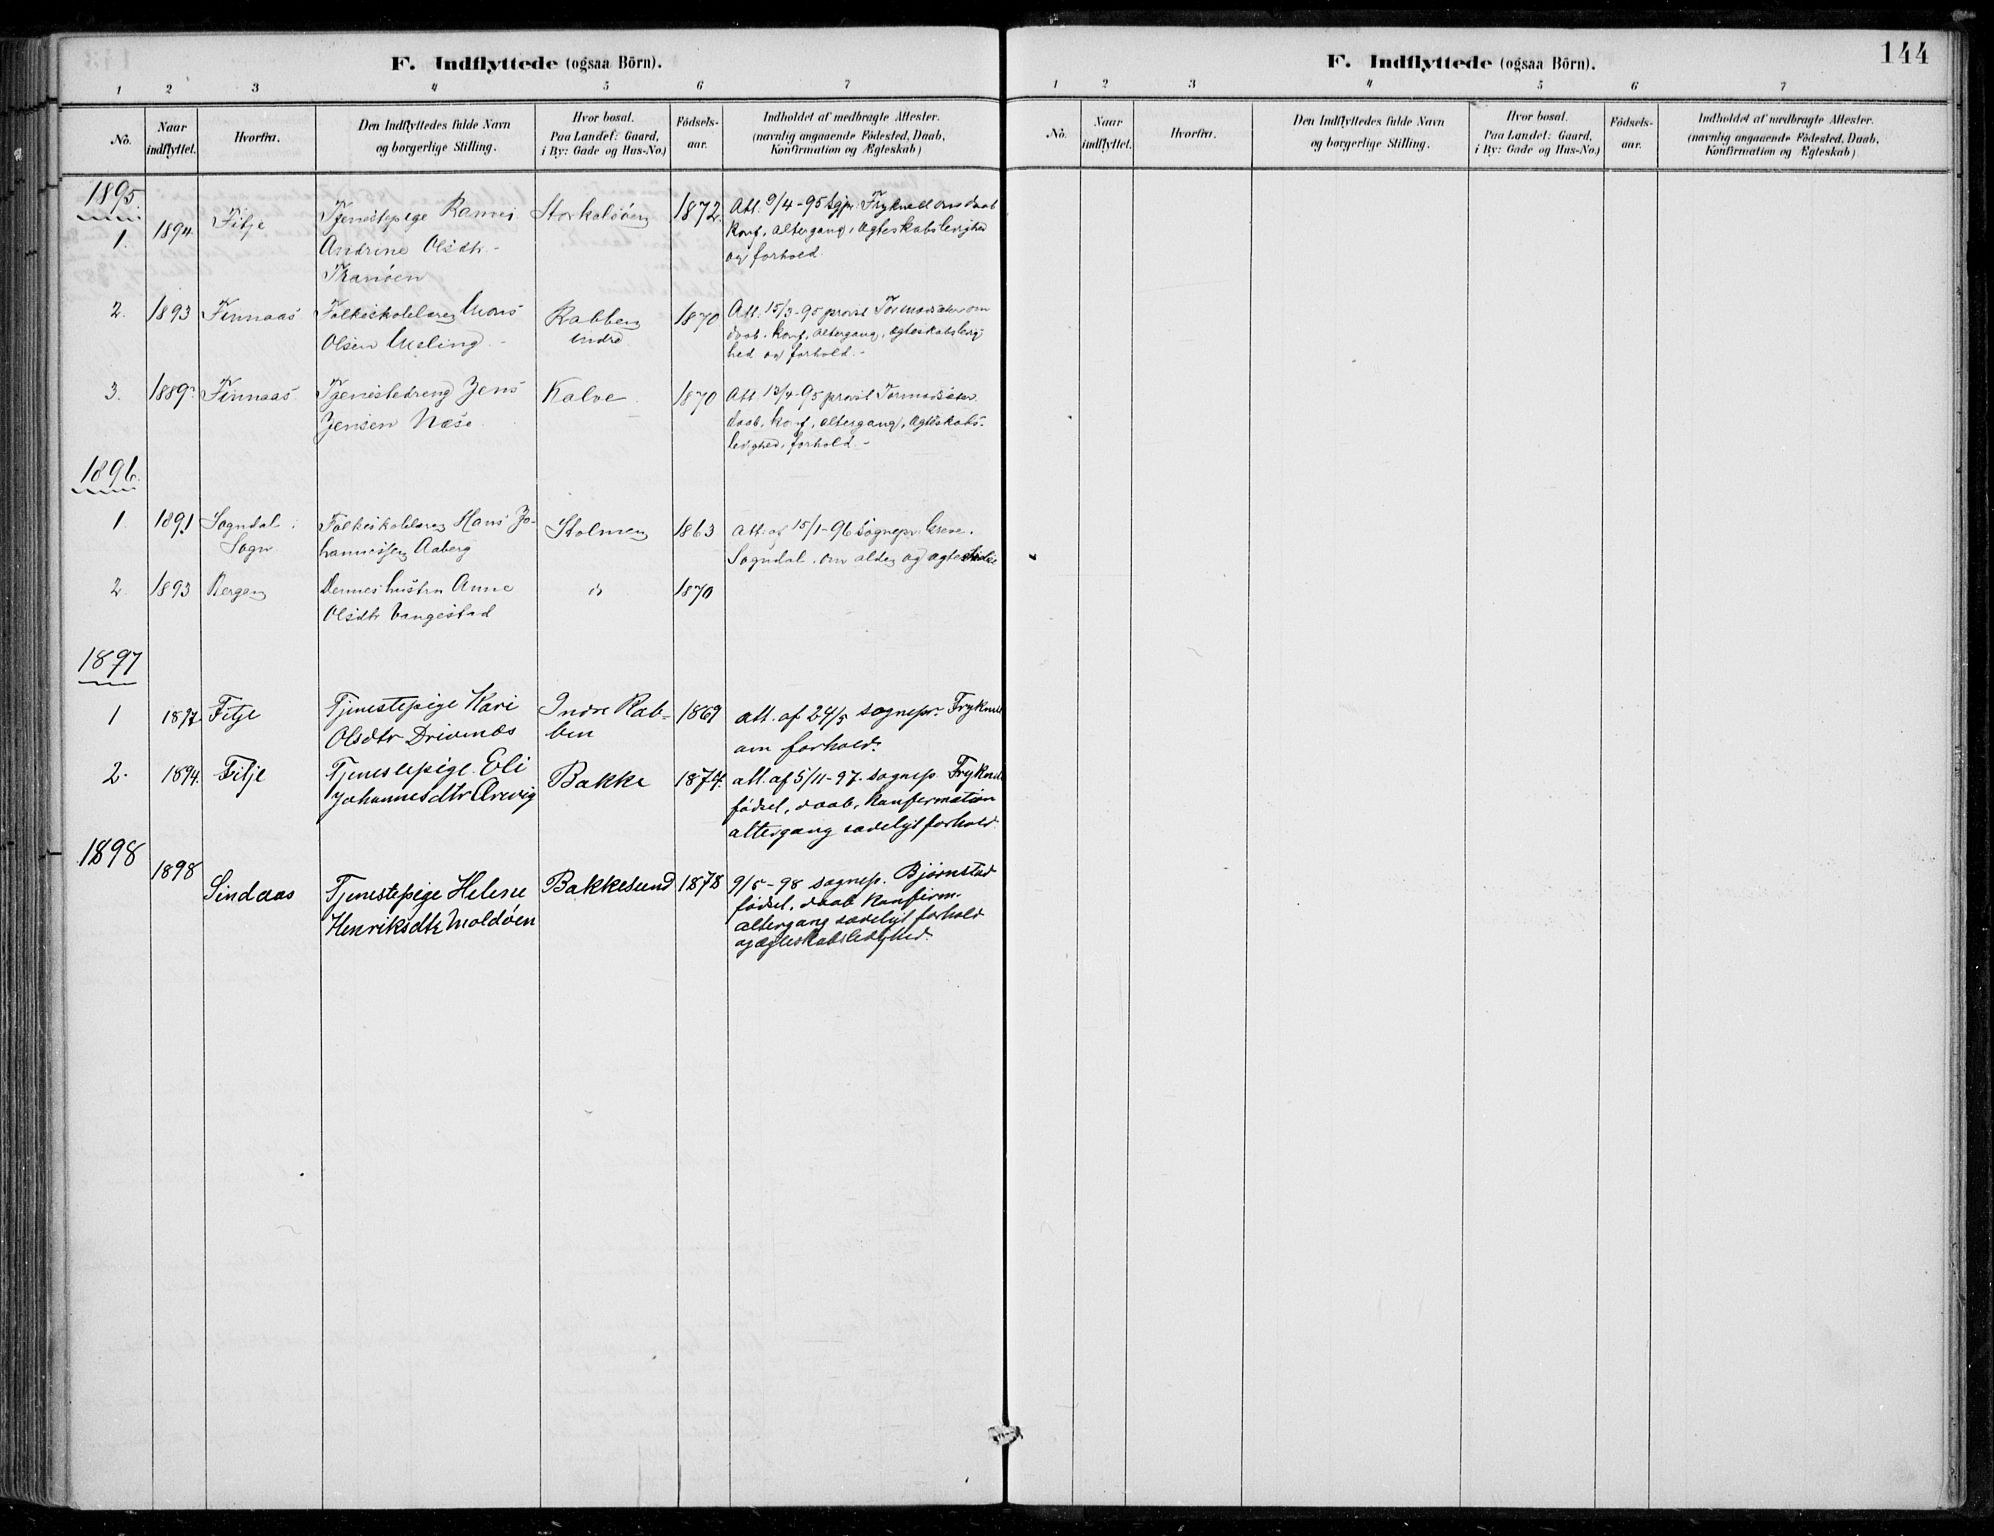 F. Indflyttede (ogsaa Börn).
1 2 3 4 5 6 7
No. Naar indflyttet. Hvorfra. Den Indflyttedes fulde Navn og borgerlige Stilling. Hvor bosat. Paa Landet: Gaard, i By: Gade og Hus-No.) Födsels-aar. Indholdet af medbragte Attester. (navnlig angaaende Födested, Daab, Konfirmation og Ægteskab)
1895.
1. 1894 Fitje Tjenestepige Storkalsöen 1872. Att. 9/4-95 sgpr. Fryknell om daab
Andrine Olsdtr. konf. altergang, ægteskabsledighed
og forhold
2. 1893 Finnaas Folkeskolelærer Mons Rabben 1870 Att. 15/3-95 provst Tormodsæter om
Olsen Meling indre daab, konf. altergang, ægteskabsledig-
hed og forhold.-
3. 1889 Finnaas Tjenestedreng Jens Kalve 1870 Att. 13/4-95 provst Tormodsæter
Jensen Næse daab, konf., altergang, ægteskabs-
ledighed, forhold.-
1896.
1 1891 Sogndal i Folkeskolelærer Hans Jo- Stolmen 1863 Att. af 15/1-96 sognepr. Greve.
Sogn hannessen Aaberg Sogndal, om alder og
2. 1893 Bergen Dennes hustru Anne 1870
Olsdtr Vangestad
1897
1 1897 Fitje Tjenestepige Kari Indre Rab- 1869 att. af 24/5 sognepr. Fryknell
Olsdtr Drivenæs ben om forhold.
2. 1894. Fitje Tjenestepige Eli Bakke 1874. att. af 5/11-97. sognep. Fryknell
Johannesdtr födsel, daab, konfermation
altergang sædeligt forhold.
1898
1898 Sindaas Tjenestepige Helene Bakkesund 1878 9/5-98 sognep. Bjørnstad
Henriksdtr Moldöen födsel, daab konfirm.
altergang sædeligt forhold
og ægteskabsledighed.
144
F. Indflyttede (ogsaa Börn).
1 2 3 4 5 6 7
No. Naar indflyttet. Hvorfra. Den Indflyttedes fulde Navn og borgerlige Stilling. Hvor bosat. Paa Landet: Gaard, i By: Gade og Hus-No.) Födsels-aar. Indholdet af medbragte Attester. (navnlig angaaende Födested, Daab, Konfirmation og Ægteskab)